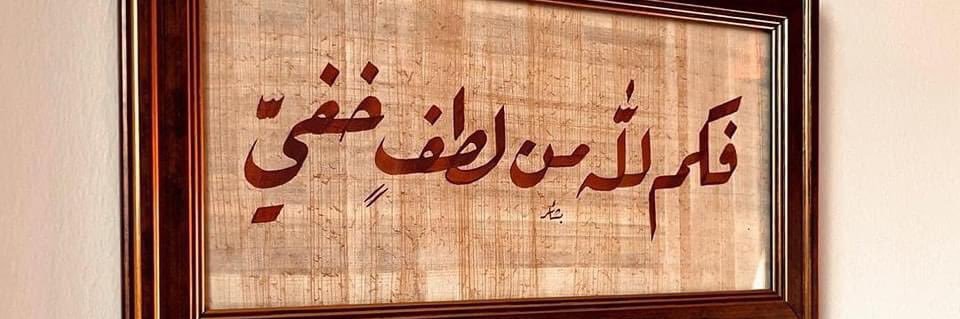 فكم لله من لطفٍ خفيّ
بشائر